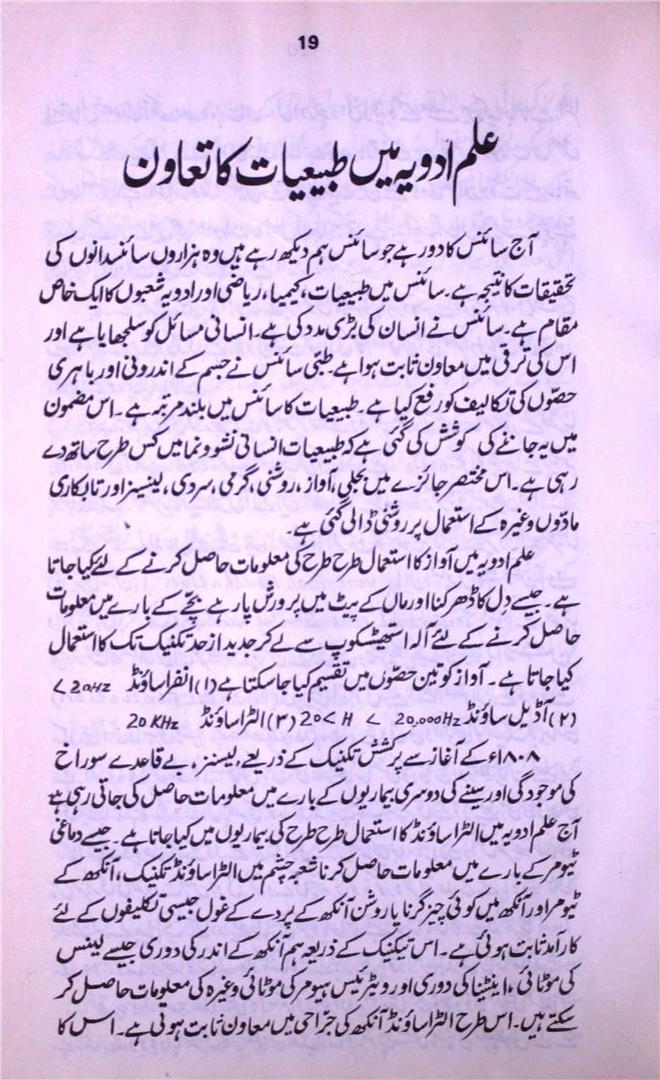 19
علم ادویہ میں طبیعیات کا تعاون
آج سائنس کا دور ہے جو سائنس ہم دیکھ رہے ہیں وہ ہزاروں سائنسدانوں کی
تحقیقات کا نتیجہ ہے۔ سائنس میں طبیعات، کیمیا، ریاضی اور ادویہ شعبوں کا ایک خاص
مقام ہے۔ سائنس نے انسان کی بڑی مدد کی ہے۔ انسانی مسائل کو سلجھایا ہے اور
اس کی ترقی میں معاون ثابت ہوا ہے۔ طبّی سائنس نے جسم کے اندرونی اور باہری
حصّوں کی تکالیف کو رفع کیا ہے۔ طبیعیات کا سائنس میں بلند مرتبہ ہے۔ اس مضمون
میں یہ جاننے کی کوشش کی گئی ہے کہ طبیعیات انسانی نشوونما میں کس طرح ساتھ دے
رہی ہے۔ اس مختصر جائزے میں بجلی، آواز، روشنی، گرمی، سردی، لینسیز اور تابکاری
مادّوں وغیرہ کے استعمال پر روشنی ڈالی گئی ہے۔
علم ادویہ میں آواز کا استعمال طرح طرح کی معلومات حاصل کرنے کے لئے کیا جاتا
ہے۔ جیسے دل کا دھڑکنا اور ماں کے پیٹ میں پرورش پا رہے بچّے کے بارے میں معلومات
حاصل کرنے کے لئے آلہ اسٹھیٹسکوپ سے لے کر جدید از حد تکنیک تک کا استعمال
کیا جاتا ہے۔ آواز کو تین حصّوں میں تقسیم کیا جا سکتا ہے (۱) انفرا ساؤنڈ < 20Hz
(۲) آڈیبل ساؤنڈ 20< H < 20,000Hz (۳) الٹرا ساؤنڈ 20 KHz
۱۸۰۸ء کے آغاز سے پرکشش تکنیک کے ذریعے، لیسنز، بے قاعدے سوراخ
کی موجودگی اور سینے کی دوسری بیماریوں کے بارے میں معلومات حاصل کی جاتی رہی ہے
آج علم ادویہ میں الٹرا ساؤنڈ کا استعمال طرح طرح کی بیماریوں میں کیا جاتا ہے۔ جیسے دماغی
ٹیومر کے بارے میں معلومات حاصل کرنا شعبہ چشم میں الٹرا ساؤنڈ تکنیک، آنکھ کے
ٹیومر اور آنکھ میں کوئی چیز گرنا یا روشن آنکھ کے پردے کے غول جیسی تکلیفوں کے لئے
کارآمد ثابت ہوئی ہے۔ اس تیکنیک کے ذریعہ ہم آنکھ کے اندر کی دوری جیسے لینس
کی موٹائی، اینٹینا کی دوری اور وٹرئیس ہیومر کی موٹائی وغیرہ کی معلومات حاصل کر
سکتے ہیں۔ اس طرح الٹرا ساؤنڈ آنکھ کی جرّاحی میں معاون ثابت ہوتی ہے۔ اس کا